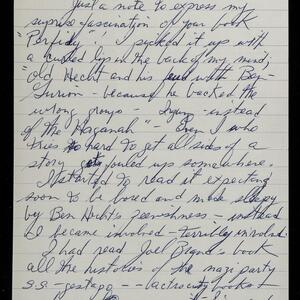 Just a note to express my
supreme fascination of your book
"Perfidy"! I picked it up with
a curled lip in the back of my mind,
"old Hecht and his feud with Ben-
Gurion - because he backed the
wrong group - Irgun - instead
of the Haganah" - Even I who
tries so hard to get all sides of a
story gets fouled up somewhere.
I started to read it expecting
soon to be bored and made sleepy
by Ben Hecht's peevishness - instead
I became involved - terribly involved.
I had read Joel Brand's book
all the histories of the nazi party
S.S. - gestapo - - atrocity books +